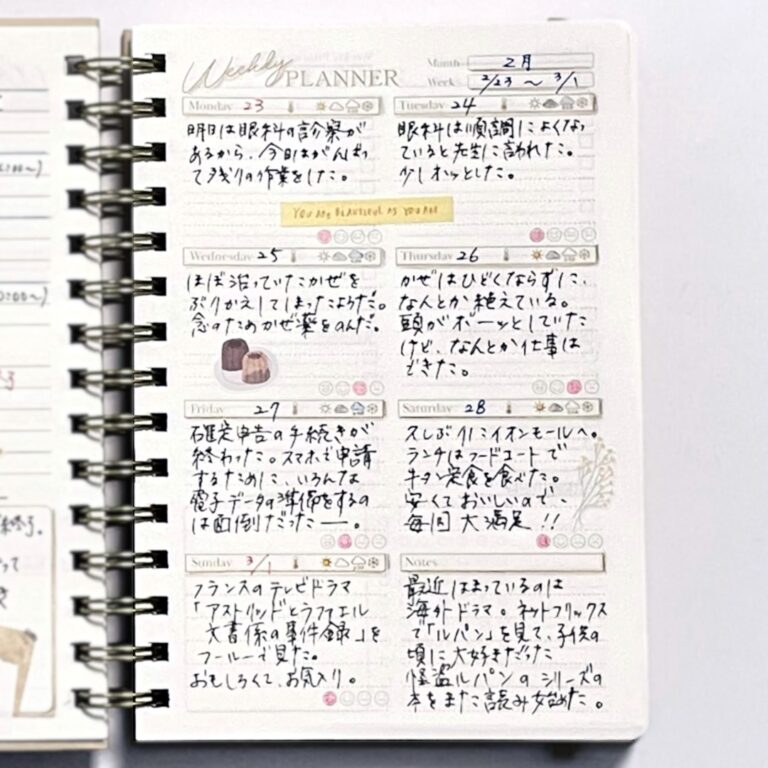 Weekly PLANNER
Month 2月
Week 2/23 〜 3/1
Monday 23
明日は眼科の診察が
あるから、今日はがんばっ
て残りの作業をした。
Tuesday 24
眼科は順調によくなっ
ていると先生に言われた。
少しホッとした。
YOU ARE BEAUTIFUL AS YOU ARE
Wednesday 25
ほぼ治っていたかぜを
ぶりかえしてしまったようだ。
念のためかぜ薬をのんだ。
Thursday 26
かぜはひどくならずに、
なんとか絶えている。
頭がボーッとしていた
けど、なんとか仕事は
できた。
Friday 27
確定申告の手続きが
終わった。スマホで申請
するために、いろんな
電子データの準備をするの
は面倒だったー。
Saturday 28
久しぶりにイオンモールへ。
ランチはフードコートで
牛タン定食を食べた。
安くておいしいので、
毎回大満足!!
Sunday 3/1
フランスのテレビドラマ
「アストリッドとラファエル
文書係の事件録」を
フールーで見た。
おもしろくて、お気入り。
Notes
最近はまっているのは
海外ドラマ。ネットフリックス
で「ルパン」を見て、子供の
頃に大好きだった
怪盗ルパンのシリーズの
本をまた読み始めた。